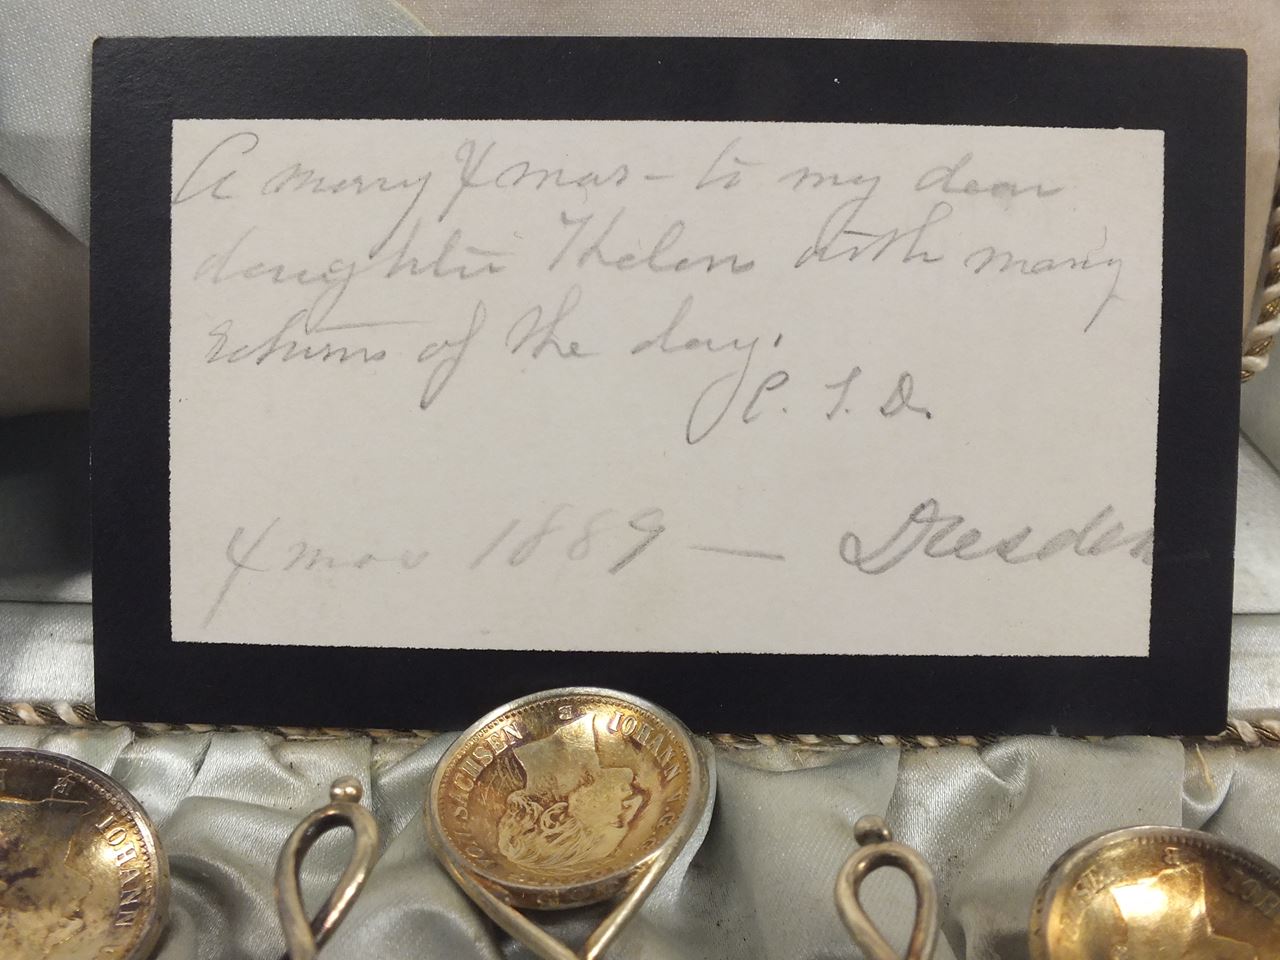 A merry Xmas - to my dear
daughter Helen with many
returns of the day.
P. T. D.
Xmas 1889 — Dresden
V. SACHSEN IOHANN V. G. G. B
IOHANN B
B